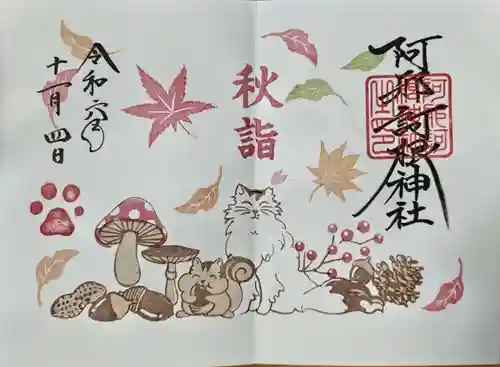 阿邪訶根神社
秋詣
令和六年
十一月四日